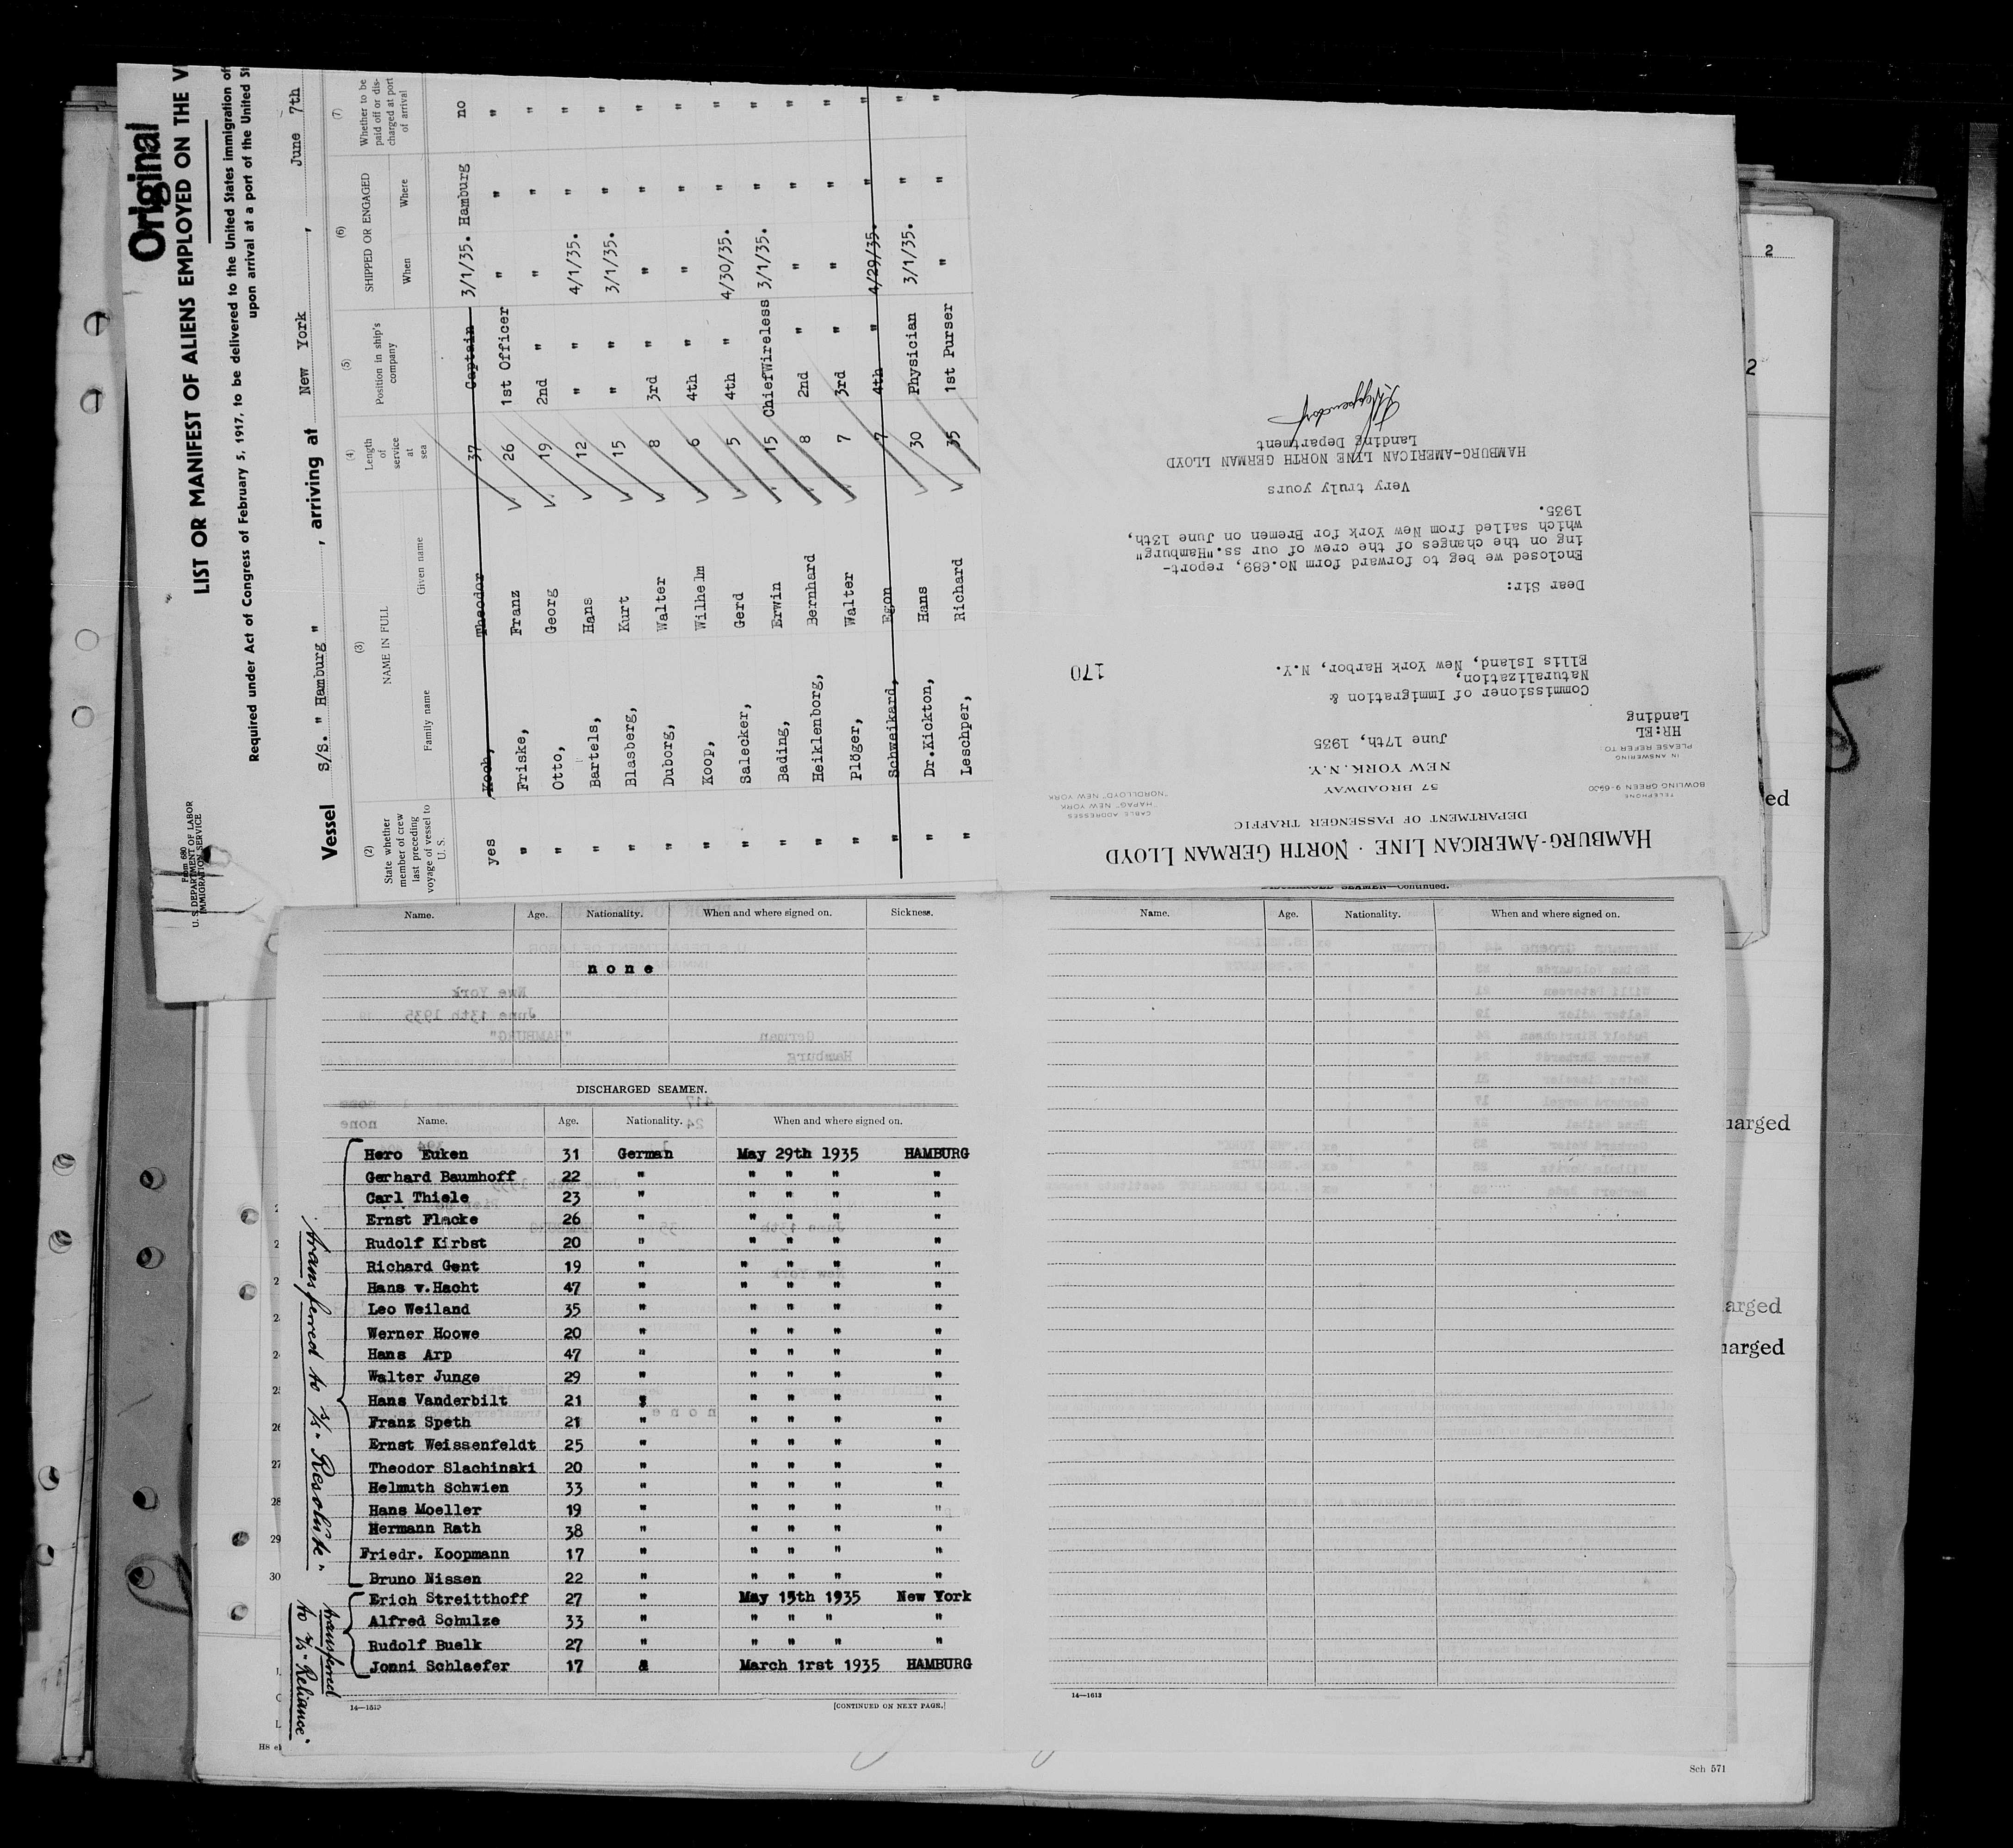 Original
LIST OR MANIFEST OF ALIENS EMPLOYED ON THE
Required under Act of Congress of February 5, 1917, to be delivered to the United States immigration
upon arrival at a port of the United
Form 680
U. S. DEPARTMENT OF LABOR
IMMIGRATION SERVICE
Vessel S/S. " Hamburg " , arriving at New York , June 7th
(2) (3) (4) (5) (6) (7)
State whether member of crew last preceding voyage of vessel to U. S. NAME IN FULL Family name Given name Length of service at sea Position in ship's company SHIPPED OR ENGAGED When Where Whether to be paid off or discharged at port of arrival
yes Koch, Theodor 37 Captain 3/1/35. Hamburg no
" Friske, Franz 26 1st Officer " " "
" Otto, Georg 19 2nd " " " "
" Bartels, Hans 12 " " 4/1/35. " "
" Blasberg, Kurt 15 " " 3/1/35. " "
" Duborg, Walter 8 3rd " " " "
" Koop, Wilhelm 6 4th " " " "
" Salecker, Gerd 5 4th " 4/30/35. " "
" Bading, Erwin 15 ChiefWireless 3/1/35. " "
" Heiklenborg, Bernhard 8 2nd " " " "
" Plöger, Walter 7 3rd " " " "
" Schweikard, Egon 7 4th " 4/29/35. " "
" Dr.Kickton, Hans 30 Physician 3/1/35. " "
" Leschper, Richard 35 1st Purser " " "
HAMBURG-AMERICAN LINE · NORTH GERMAN LLOYD
DEPARTMENT OF PASSENGER TRAFFIC
57 BROADWAY
NEW YORK, N.Y.
TELEPHONE
BOWLING GREEN 9-6900
CABLE ADDRESSES
"HAPAG" NEW YORK
"NORDLLOYD" NEW YORK
June 17th, 1935
IN ANSWERING
PLEASE REFER TO
HR:EL
Landing
Commissioner of Immigration &
Naturalization,
Ellis Island, New York Harbor, N.Y.
170
Dear Sir:
Enclosed we beg to forward form No.689, report-
ing on the changes of the crew of our ss."Hamburg"
which sailed from New York for Bremen on June 13th,
1935.
Very truly yours
HAMBURG-AMERICAN LINE NORTH GERMAN LLOYD
Landing Department
Name. Age. Nationality. When and where signed on. Sickness.
none
DISCHARGED SEAMEN.
Name. Age. Nationality. When and where signed on.
Hero Euken 31 German May 29th 1935 HAMBURG
Gerhard Baumhoff 22 " " " " "
Carl Thiele 23 " " " " "
Ernst Flacke 26 " " " " "
Rudolf Kirbst 20 " " " " "
Richard Gent 19 " " " " "
Hans v.Hacht 47 " " " " "
Leo Weiland 35 " " " " "
Werner Hoowe 20 " " " " "
Hans Arp 47 " " " " "
Walter Junge 29 " " " " "
Hans Vanderbilt 21 " " " "
Franz Speth 21 " " " " "
Ernst Weissenfeldt 25 " " " " "
Theodor Slachinski 20 " " " " "
Helmuth Schwien 33 " " " " "
Hans Moeller 19 " " " " "
Hermann Rath 38 " " " " "
Friedr. Koopmann 17 " " " " "
Bruno Nissen 22 " " " " "
Erich Streitthoff 27 " May 15th 1935 New York
Alfred Schulze 33 " " " " "
Rudolf Buelk 27 " " " " "
Jonni Schlaefer 17 March 1rst 1935 HAMBURG
transferred to s/s "Resolute"
transferred
to s/s "Reliance"
14—1613 [CONTINUED ON NEXT PAGE.]
DISCHARGED SEAMEN—Continued.
Name. Age. Nationality. When and where signed on.
14—1613
2
2
5
ed
harged
arged
harged
26
27
28
29
30
Sch 571